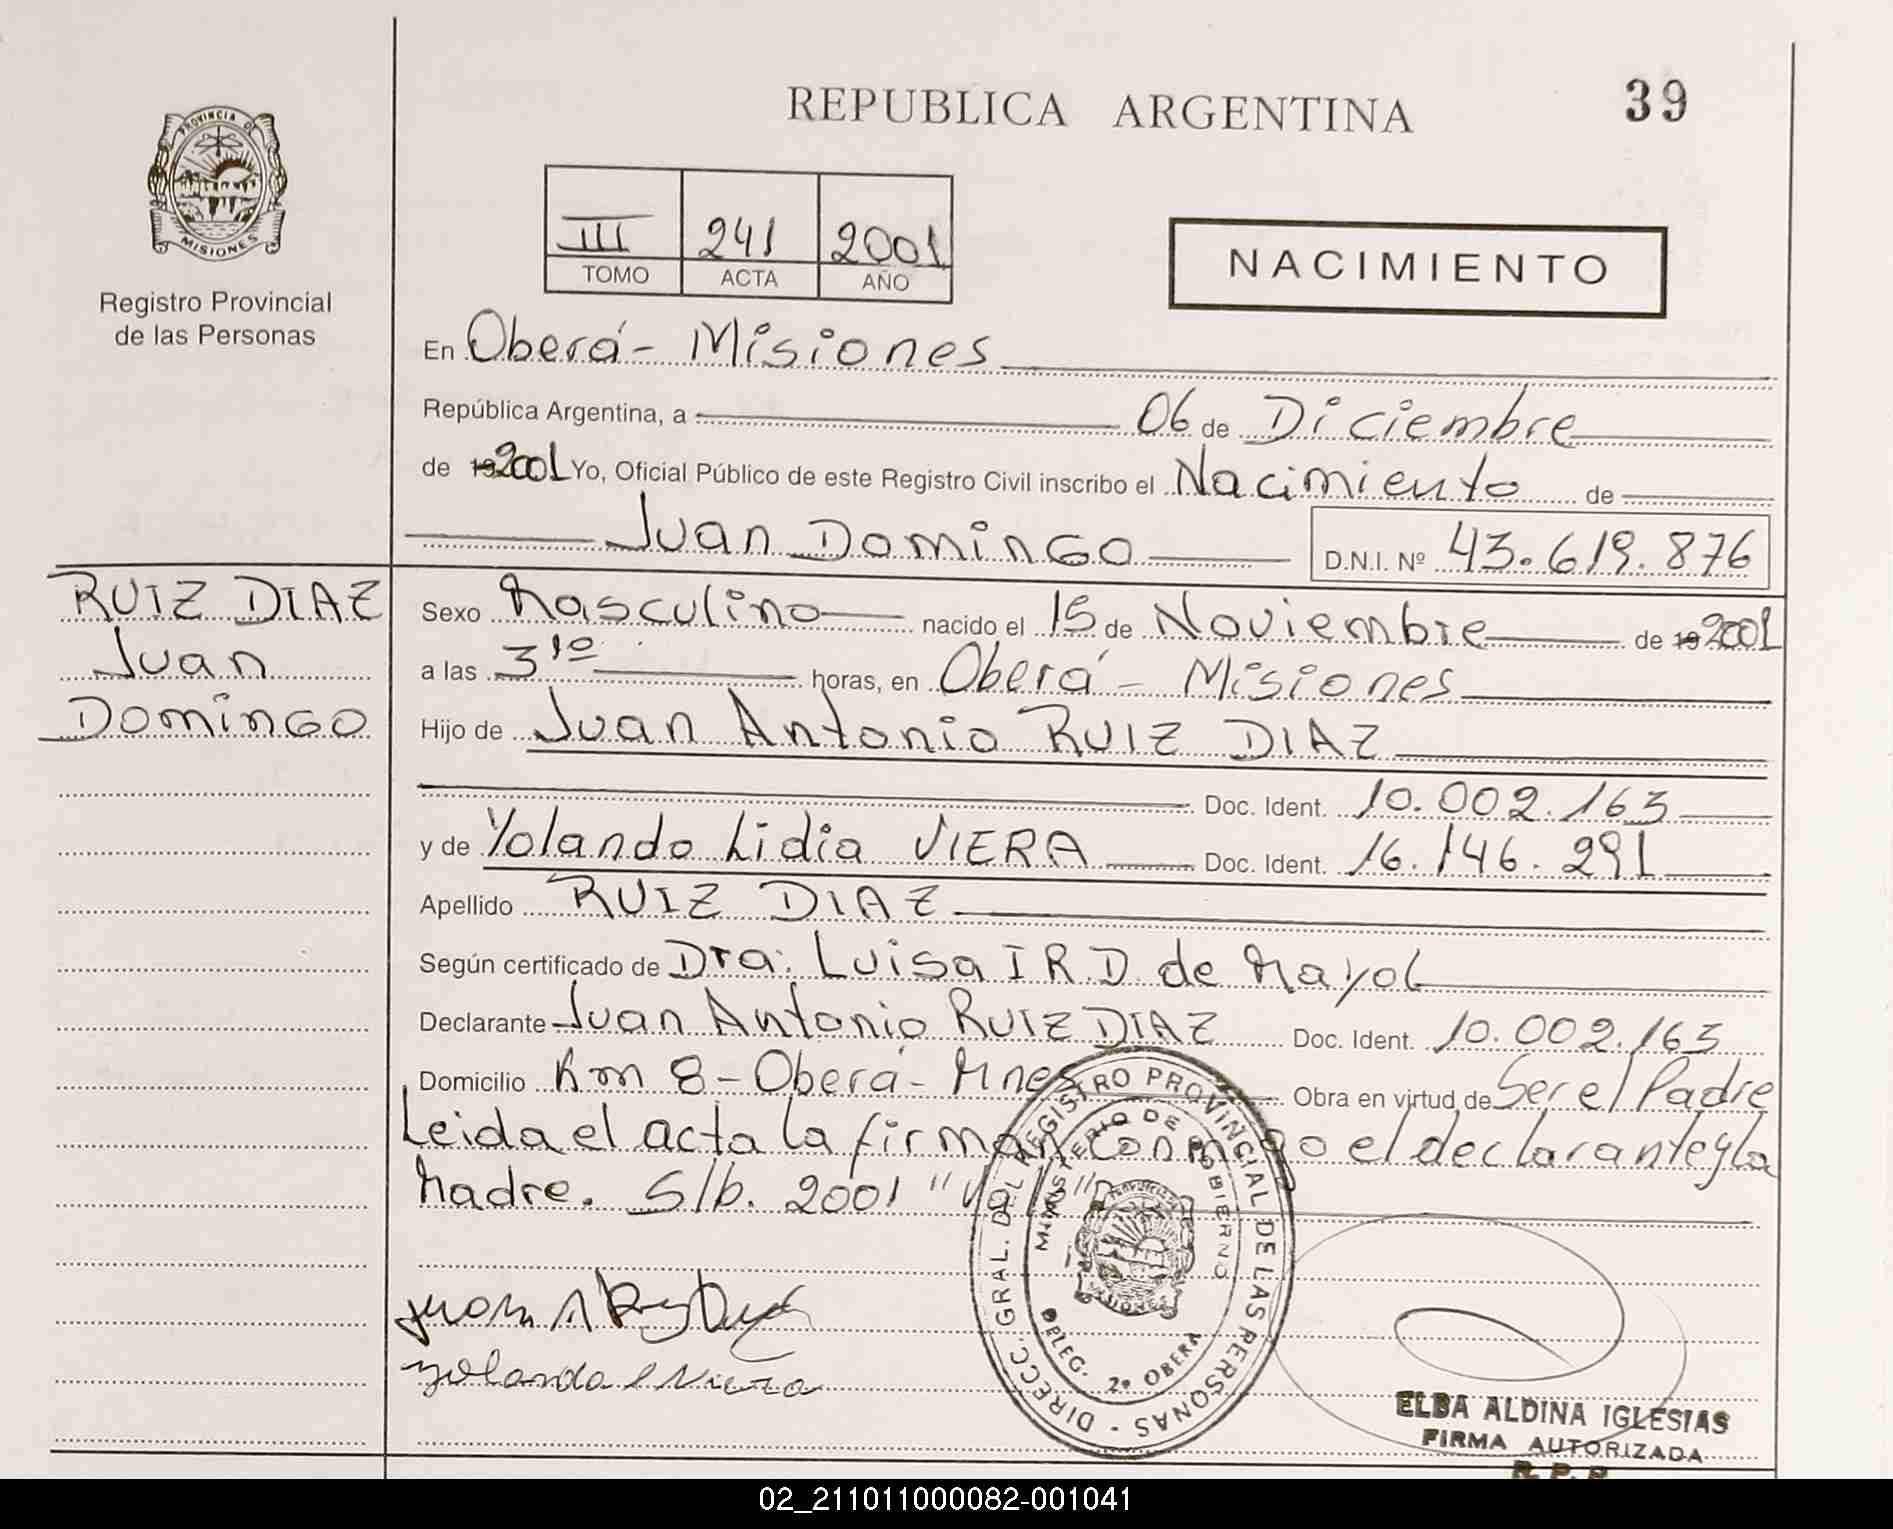 REPUBLICA ARGENTINA
39
PROVINCIA DE
MISIONES
Registro Provincial
de las Personas
III 241 2001
TOMO ACTA AÑO
NACIMIENTO
En Oberá - Misiones
República Argentina, a 06 de Diciembre
de 19 2001 Yo, Oficial Público de este Registro Civil inscribo el Nacimiento de
Juan Domingo D.N.I. Nº 43.619.876
RUIZ DIAZ
Juan
Domingo
Sexo Masculino nacido el 15 de Noviembre de 19 2001
a las 3 10 horas, en Oberá - Misiones
Hijo de Juan Antonio RUIZ DIAZ
Doc. Ident. 10.002.163
y de Yolanda Lidia VIERA Doc. Ident. 16.146.291
Apellido RUIZ DIAZ
Según certificado de Dra: Luisa I R.D de Mayol
Declarante Juan Antonio RUIZ DIAZ Doc. Ident. 10.002.163
Domicilio Km 8 - Oberá - Mnes Obra en virtud de Ser el Padre
Leida el acta la firman conmigo el declarante y la
Madre. S/b. 2001
DIRECC. GRAL. DEL REGISTRO PROVINCIAL DE LAS PERSONAS -
MINISTERIO DE GOBIERNO
DELEG. 2º OBERA
MISIONES
Juan A Ruiz Diaz
Yolanda L Viera
ELBA ALDINA IGLESIAS
FIRMA AUTORIZADA
R. P. P.
02_211011000082-001041